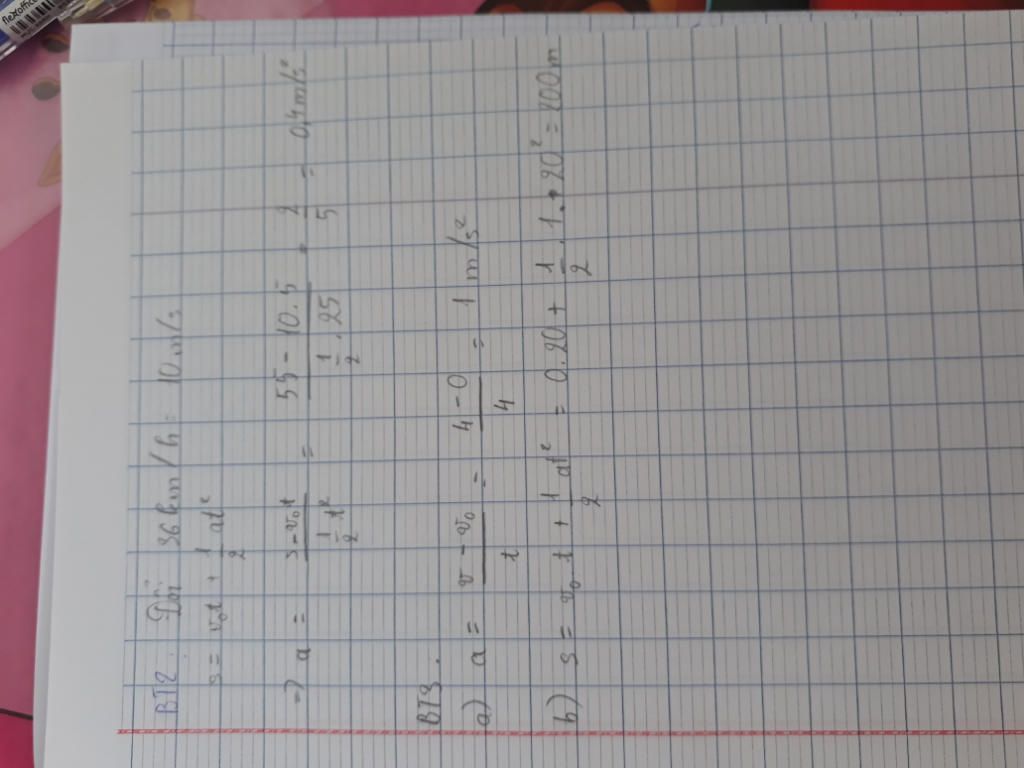 flexoffice
BT2. Đổi 36 km/h = 10 m/s
s = v₀t + 1/2 at²
=) a = (s - v₀t)/(1/2 t²) = (55 - 10.5)/(1/2 . 25) = 2/5 = 0,4 m/s²
BT3.
a) a = (v - v₀)/t = (4 - 0)/4 = 1 m/s²
b) s = v₀.t + 1/2 at² = 0.20 + 1/2 . 1 . 20² = 200m